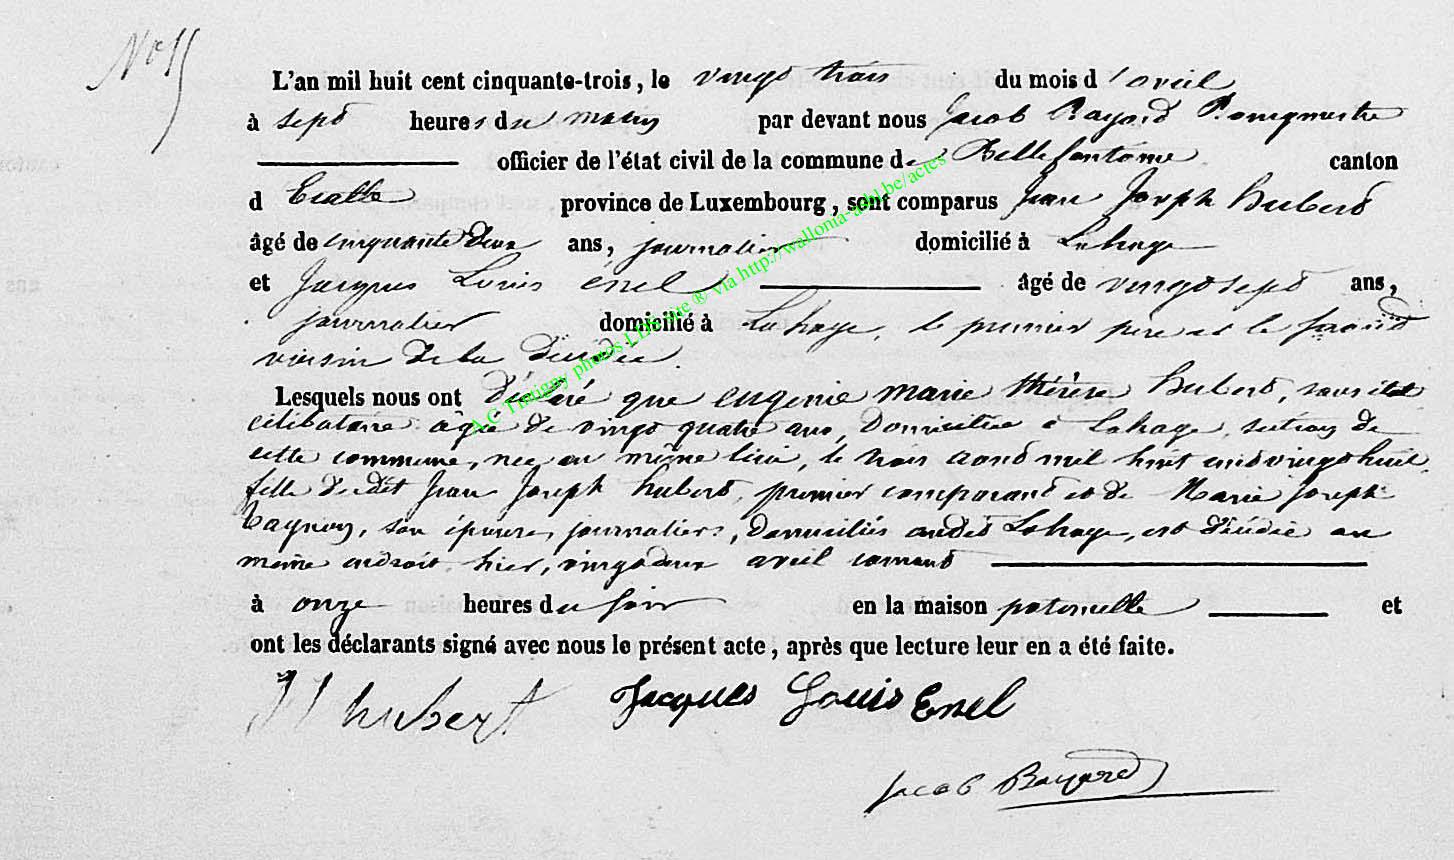 No 11
L'an mil huit cent cinquante-trois, le vingt trois du mois d'avril
à sept heures du matin par devant nous Jacob Bayard Bourgmestre
officier de l'état civil de la commune de Bellefontaine canton
d'Etalle province de Luxembourg, sont comparus Jean Joseph hubert
âgé de cinquante deux ans, journalier domicilié à Lahage
et Jacques Louis Enel âgé de vingt sept ans,
journalier domicilié à Lahage, le premier père et le second
voisin de la décédée.
Lesquels nous ont déclaré que eugénie marie thérèse hubert, sans état
célibataire âgée de vingt quatre ans, domiciliée à Lahage, section de
cette commune, née au même lieu, le trois aout mil huit cent vingt huit
fille dudit Jean Joseph hubert, premier comparant et de Marie Joseph
son épouse, journaliers, domiciliés audit Lahage, est décédée au
même endroit, hier, vingt deux avril courant
à onze heures du soir en la maison paternelle et
ont les déclarants signé avec nous le présent acte, après que lecture leur en a été faite.
JJ hubert Jacques Louis Enel
Jacob Bayard
A.C Tintigny photos LDS site ® via http://wallonia-asbl.be/actes